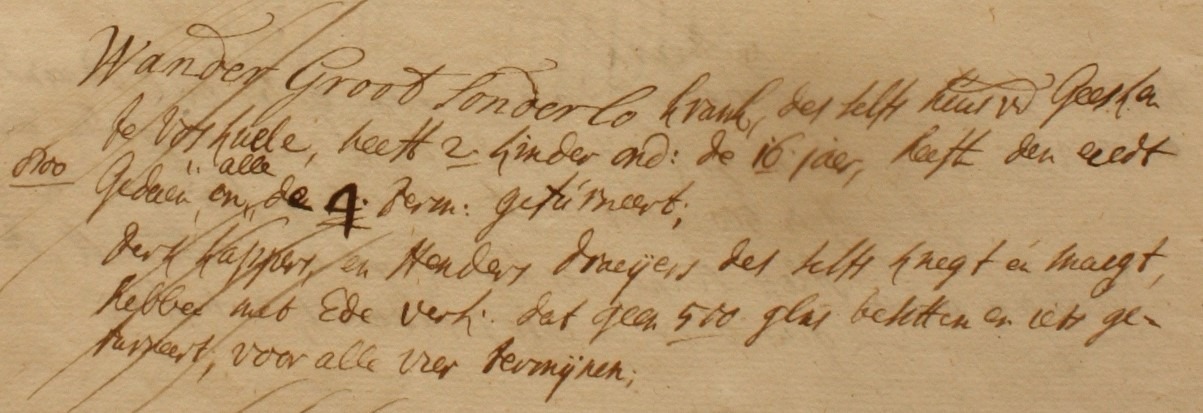 Wander Groot Sonderlo krank, des selfs huisvr Geesken
te Voshuele, heeft 2 kinder ond: de 16 jaer, heeft den eedt
500 Gedaen en alle de 4 term: gefurneert;
Derk Kappers, en Henders Draeijers des selfs knegt en maegt,
hebben met Ede verk: dat geen 500 glns besitten en iets ge-
furneert, voor alle vier termijnen;